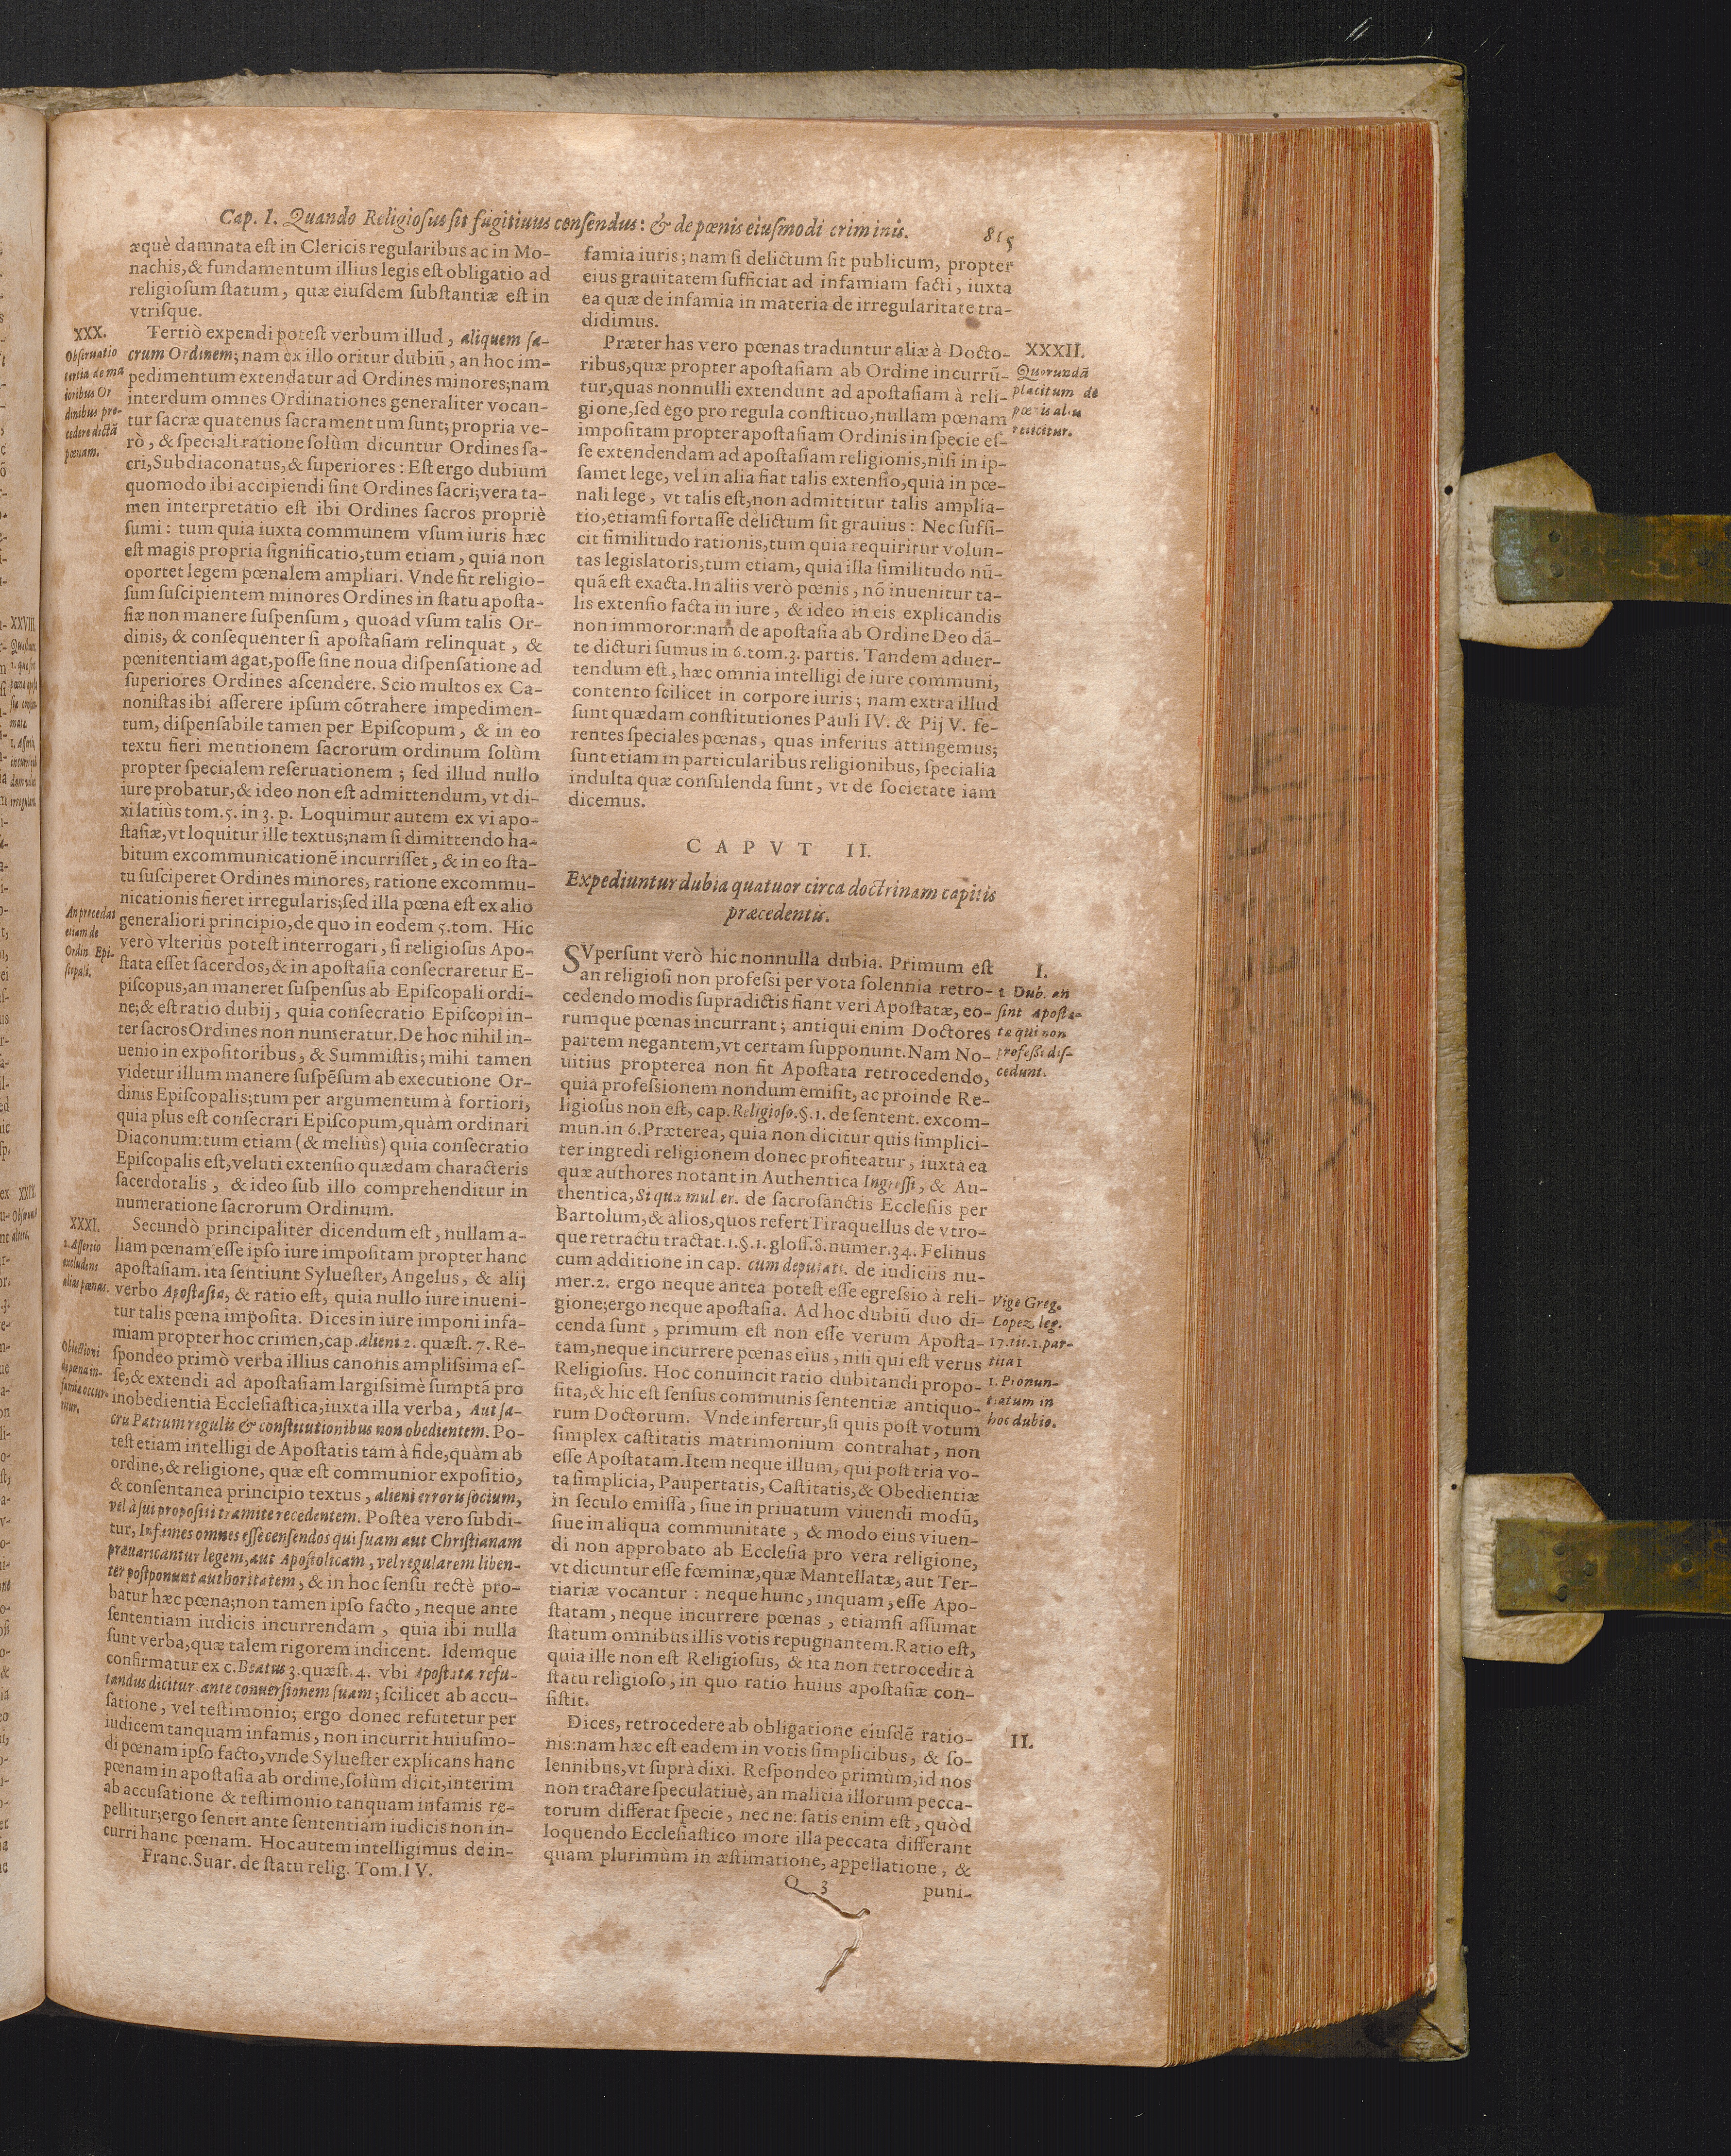 Cap. I. Quando Religiosus sit fugitiuus censendus: & de pœnis eiusmodi criminis. 815
æquè damnata est in Clericis regularibus ac in Mo-
nachis, & fundamentum illius legis est obligatio ad
religiosum statum, quæ eiusdem substantiæ est in
vtrisque.
XXX.
Obseruatio
tertia de ma
ioribus Or
dinibus pro-
cedere dictā
pœnam.
Tertiò expendi potest verbum illud, aliquem sa-
crum Ordinem; nam ex illo oritur dubiū, an hoc im-
pedimentum extendatur ad Ordines minores; nam
interdum omnes Ordinationes generaliter vocan-
tur sacræ quatenus sacramentum sunt; propria ve-
rò, & speciali ratione solùm dicuntur Ordines sa-
cri, Subdiaconatus, & superiores: Est ergo dubium
quomodo ibi accipiendi sint Ordines sacri; vera ta-
men interpretatio est ibi Ordines sacros propriè
sumi: tum quia iuxta communem vsum iuris hæc
est magis propria significatio, tum etiam, quia non
oportet legem pœnalem ampliari. Vnde fit religio-
sum suscipientem minores Ordines in statu aposta-
siæ non manere suspensum, quoad vsum talis Or-
dinis, & consequenter si apostasiam relinquat, &
pœnitentiam agat, posse sine noua dispensatione ad
superiores Ordines ascendere. Scio multos ex Ca-
nonistas ibi asserere ipsum cōtrahere impedimen-
tum, dispensabile tamen per Episcopum, & in eo
textu fieri mentionem sacrorum ordinum solùm
propter specialem reseruationem; sed illud nullo
iure probatur, & ideo non est admittendum, vt di-
xi latiùs tom. 5. in 3. p. Loquimur autem ex vi apo-
stasiæ, vt loquitur ille textus; nam si dimittendo ha-
bitum excommunicationē incurrisset, & in eo sta-
tu susciperet Ordines minores, ratione excommu-
nicationis fieret irregularis; sed illa pœna est ex alio
generaliori principio, de quo in eodem 5. tom. Hic
verò vlteriùs potest interrogari, si religiosus Apo-
stata esset sacerdos, & in apostasia consecraretur E-
piscopus, an maneret suspensus ab Episcopali ordi-
ne; & est ratio dubij, quia consecratio Episcopi in-
ter sacros Ordines non numeratur. De hoc nihil in-
uenio in expositoribus, & Summistis; mihi tamen
videtur illum manere suspēsum ab executione Or-
dinis Episcopalis; tum per argumentum à fortiori,
quia plus est consecrari Episcopum, quàm ordinari
Diaconum: tum etiam (& meliùs) quia consecratio
Episcopalis est, veluti extensio quædam characteris
sacerdotalis, & ideo sub illo comprehenditur in
numeratione sacrorum Ordinum.
An procedat
etiam de
Ordin. Epi-
scopali.
XXXI.
2. Assertio
excludens
alias pœnas.
Secundò principaliter dicendum est, nullam a-
liam pœnam esse ipso iure impositam propter hanc
apostasiam. ita sentiunt Syluester, Angelus, & alij
verbo Apostasia, & ratio est, quia nullo iure inueni-
tur talis pœna imposita. Dices in iure imponi infa-
miam propter hoc crimen, cap. alieni 2. quæst. 7. Re-
spondeo primò verba illius canonis amplissima es-
se, & extendi ad apostasiam largissimè sumptā pro
inobedientia Ecclesiastica, iuxta illa verba, Aut sa-
crū Patrum regulis & constitutionibus non obedientem. Po-
test etiam intelligi de Apostatis tam à fide, quàm ab
ordine, & religione, quæ est communior expositio,
& consentanea principio textus, alieni erroru socium,
vel à sui propositi tramite recedentem. Postea vero subdi-
tur, Infames omnes esse censendos qui suam aut Christianam
præuaricantur legem, aut Apostolicam, vel regularem liben-
ter postponunt authoritatem, & in hoc sensu rectè pro-
batur hæc pœna; non tamen ipso facto, neque ante
sententiam iudicis incurrendam, quia ibi nulla
sunt verba, quæ talem rigorem indicent. Idemque
confirmatur ex c. Beatus 3. quæst. 4. vbi Apostata refu-
tandus dicitur ante conuersionem suam; scilicet ab accu-
satione, vel testimonio; ergo donec refutetur per
iudicem tanquam infamis, non incurrit huiusmo-
di pœnam ipso facto, vnde Syluester explicans hanc
pœnam in apostasia ab ordine, solùm dicit, interim
ab accusatione & testimonio tanquam infamis re-
pellitur; ergo sentit ante sententiam iudicis non in-
curri hanc pœnam. Hoc autem intelligimus de in-
Obiectioni
de pœna in-
famiæ occur-
ritur.
Franc. Suar. de statu relig. Tom. IV.
famia iuris; nam si delictum sit publicum, propter
eius grauitatem sufficiat ad infamiam facti, iuxta
ea quæ de infamia in materia de irregularitate tra-
didimus.
Præter has vero pœnas traduntur aliæ à Docto-
ribus, quæ propter apostasiam ab Ordine incurrū-
tur, quas nonnulli extendunt ad apostasiam à reli-
gione, sed ego pro regula constituo, nullam pœnam
impositam propter apostasiam Ordinis in specie es-
se extendendam ad apostasiam religionis, nisi in ip-
samet lege, vel in alia fiat talis extensio, quia in pœ-
nali lege, vt talis est, non admittitur talis amplia-
tio, etiamsi fortasse delictum sit grauius: Nec suffi-
cit similitudo rationis, tum quia requiritur volun-
tas legislatoris, tum etiam, quia illa similitudo nū-
quā est exacta. In aliis verò pœnis, nō inuenitur ta-
lis extensio facta in iure, & ideo in eis explicandis
non immoror: nam de apostasia ab Ordine Deo dā-
te dicturi sumus in 6. tom. 3. partis. Tandem aduer-
tendum est, hæc omnia intelligi de iure communi,
contento scilicet in corpore iuris; nam extra illud
sunt quædam constitutiones Pauli IV. & Pij V. fe-
rentes speciales pœnas, quas inferius attingemus;
sunt etiam in particularibus religionibus, specialia
indulta quæ consulenda sunt, vt de societate iam
dicemus.
XXXII.
Quorundā
placitum de
pœnis aliis
reiicitur.
CAPVT II.
Expediuntur dubia quatuor circa doctrinam capitis
præcedentis.
SVpersunt verò hic nonnulla dubia. Primum est
an religiosi non professi per vota solennia retro-
cedendo modis supradictis fiant veri Apostatæ, eo-
rumque pœnas incurrant; antiqui enim Doctores
partem negantem, vt certam supponunt. Nam No-
uitius propterea non fit Apostata retrocedendo,
quia professionem nondum emisit, ac proinde Re-
ligiosus non est, cap. Religioso. §. 1. de sentent. excom-
mun. in 6. Præterea, quia non dicitur quis simplici-
ter ingredi religionem donec profiteatur, iuxta ea
quæ authores notant in Authentica Ingressi, & Au-
thentica, Si qua mulier. de sacrosanctis Ecclesiis per
Bartolum, & alios, quos refert Tiraquellus de vtro-
que retractu tractat. 1. §. 1. gloss. 8. numer. 34. Felinus
cum additione in cap. cum deputati. de iudiciis nu-
mer. 2. ergo neque antea potest esse egressio à reli-
gione; ergo neque apostasia. Ad hoc dubiū duo di-
cenda sunt, primum est non esse verum Aposta-
tam, neque incurrere pœnas eius, nisi qui est verus
Religiosus. Hoc conuincit ratio dubitandi propo-
sita, & hic est sensus communis sententiæ antiquo-
rum Doctorum. Vnde infertur, si quis post votum
simplex castitatis matrimonium contrahat, non
esse Apostatam. Item neque illum, qui post tria vo-
ta simplicia, Paupertatis, Castitatis, & Obedientiæ
in seculo emissa, siue in priuatum viuendi modū,
siue in aliqua communitate, & modo eius viuen-
di non approbato ab Ecclesia pro vera religione,
vt dicuntur esse fœminæ, quæ Mantellatæ, aut Ter-
tiariæ vocantur: neque hunc, inquam, esse Apo-
statam, neque incurrere pœnas, etiamsi assumat
statum omnibus illis votis repugnantem. Ratio est,
quia ille non est Religiosus, & ita non retrocedit à
statu religioso, in quo ratio huius apostasiæ con-
sistit.
I.
1. Dub. an
sint Aposta-
tæ qui non
professi dis-
cedunt.
Vige Greg.
Lopez leg.
17. tit. 1. par-
tita 1
1. Pronun-
tiatum in
hoc dubio.
Dices, retrocedere ab obligatione eiusdē ratio-
nis: nam hæc est eadem in votis simplicibus, & so-
lennibus, vt suprà dixi. Respondeo primùm, id nos
non tractare speculatiuè, an malitia illorum pecca-
torum differat specie, nec ne: satis enim est, quòd
loquendo Ecclesiastico more illa peccata differant
quam plurimùm in æstimatione, appellatione, &
II.
Q 3 puni-